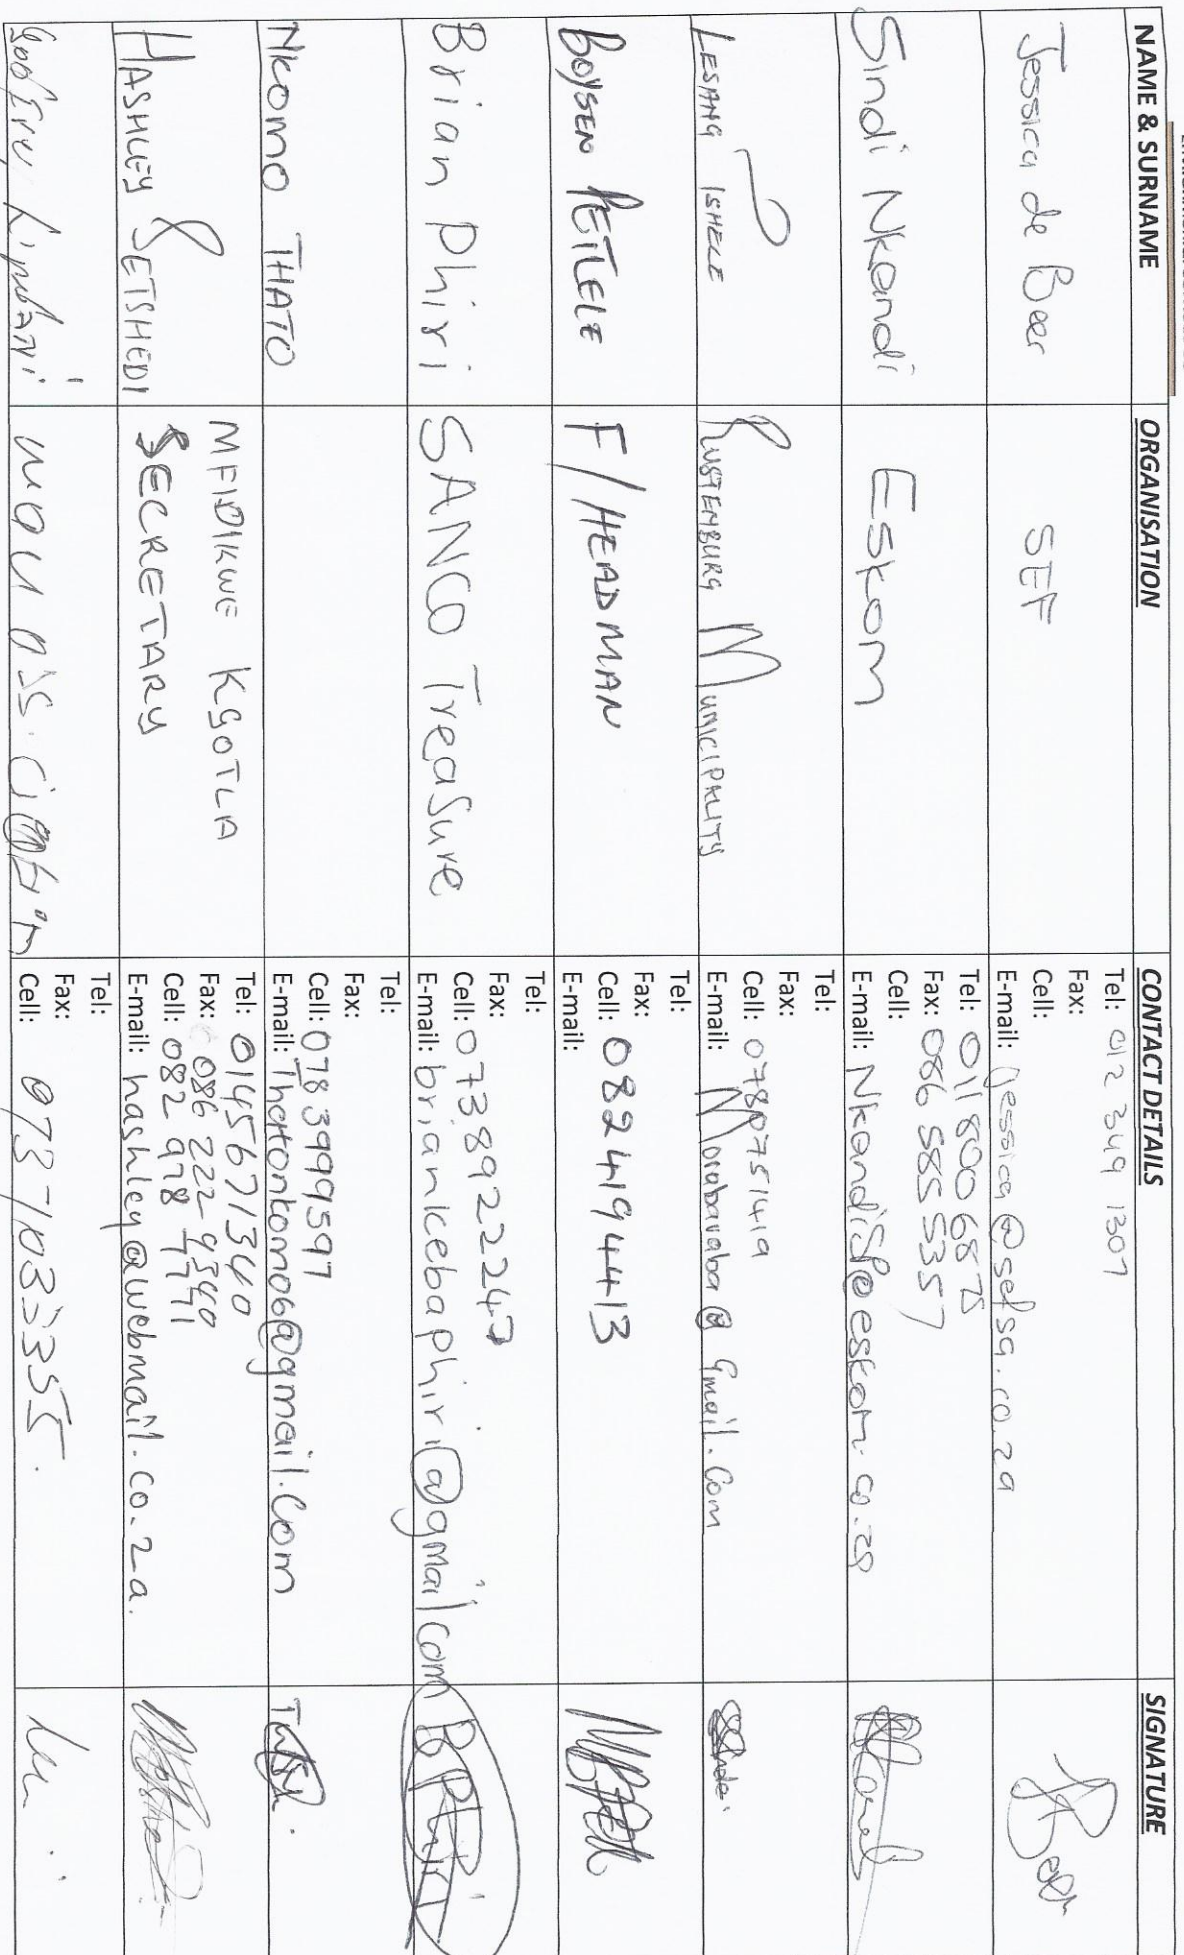 NAME & SURNAME ORGANISATION CONTACT DETAILS SIGNATURE
Jessica de Beer SEF Tel: 012 349 1307
Fax:
Cell:
E-mail: jessica@sefsa.co.za
Sindi Nkandi Eskom Tel: 011 800 6875
Fax: 086 585 5357
Cell:
E-mail: NkandiSP@eskom.co.za
LESANG ISHELE RUSTENBURG MUNICIPALITY Tel:
Fax:
Cell: 0780751419
E-mail: Morabaraba@gmail.com
BOYSEN PETLELE F/HEADMAN Tel:
Fax:
Cell: 0824194413
E-mail:
Brian Phiri SANCO Treasure Tel:
Fax:
Cell: 0738922247
E-mail: briankebaphiri@gmail.com BPhiri
Nkomo THATO Tel:
Fax:
Cell: 0783999597
E-mail: Thatonkomo06@gmail.com
HASHLEY SETSHEDI MFIDIKWE KGOTLA SECRETARY Tel: 0145671340
Fax: 086 222 9340
Cell: 082 978 7771
E-mail: hashley@webmail.co.za.
Tel:
Fax:
Cell: